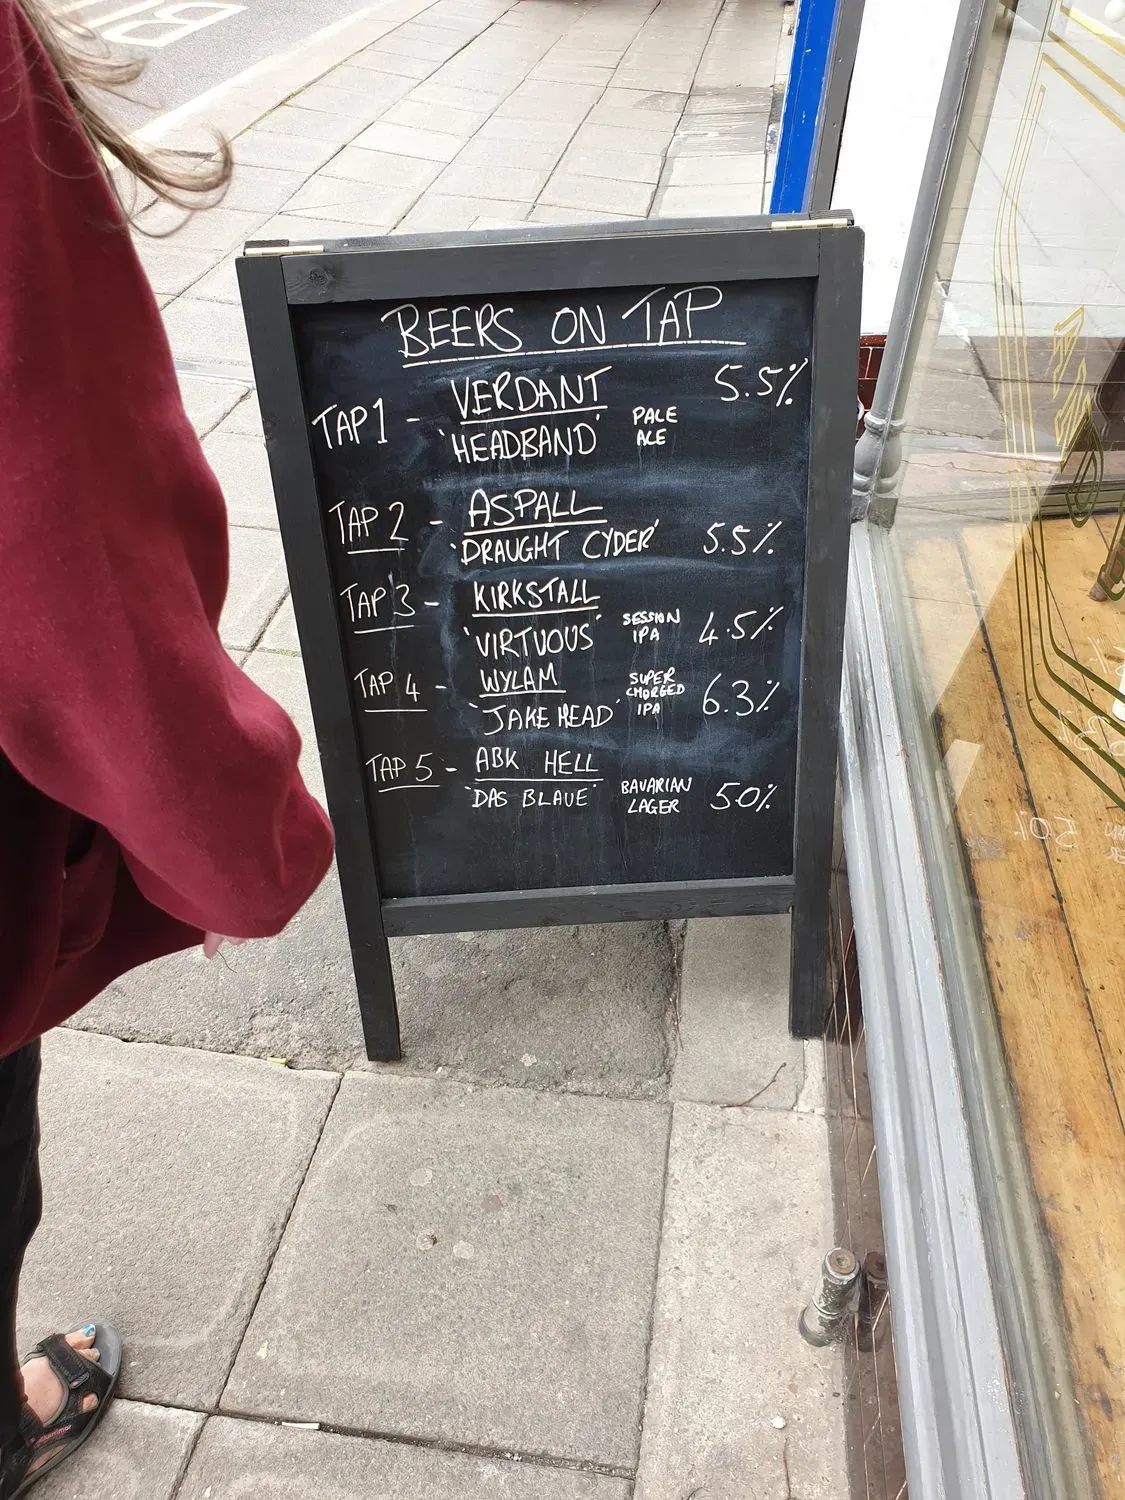 BEERS ON TAP
TAP 1 - VERDANT 5.5%
'HEADBAND' PALE ALE
TAP 2 - ASPALL
'DRAUGHT CYDER' 5.5%
TAP 3 - KIRKSTALL
'VIRTUOUS' SESSION IPA 4.5%
TAP 4 - WYLAM
'JAKE HEAD' SUPER CHARGED IPA 6.3%
TAP 5 - ABK HELL
'DAS BLAUE' BAVARIAN LAGER 5.0%